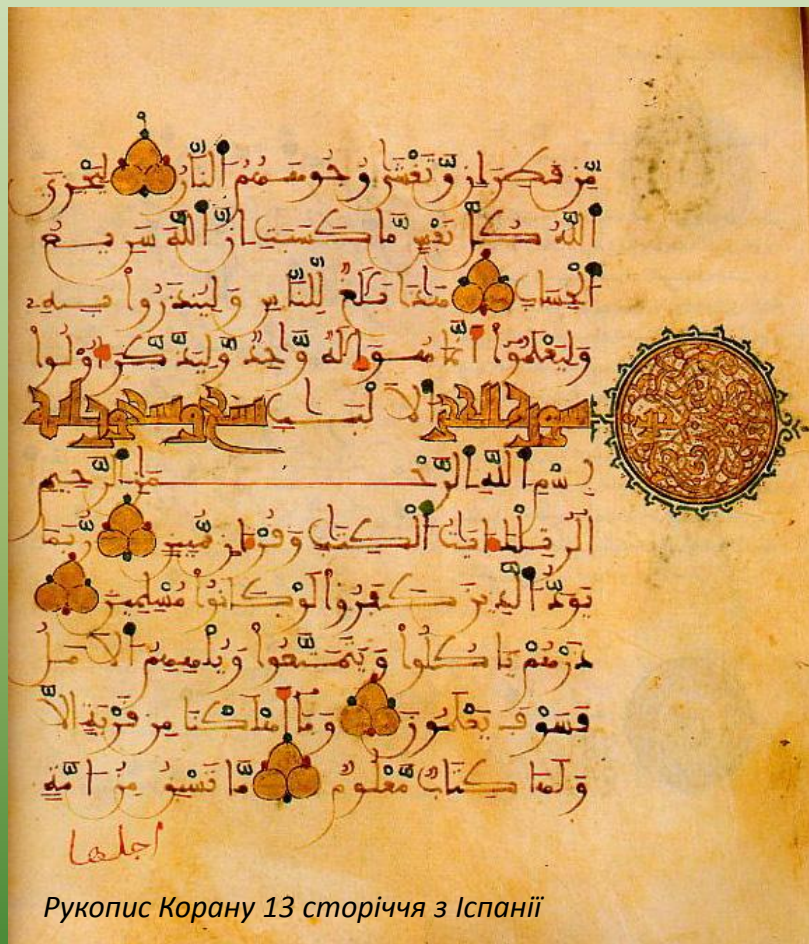 مِّن قَطِرَانٍ وَّتَغْشَىٰ وُجُوهَهُمُ النَّارُ لِيَجْزِيَ
اللَّهُ كُلَّ نَفْسٍ مَّا كَسَبَتِ اِنَّ اللَّهَ سَرِيعُ
الْحِسَابِ هَٰذَا بَلَٰغٌ لِّلنَّاسِ وَلِيُنذَرُواْ بِهِ
وَلِيَعْلَمُواْ أَنَّمَا هُوَ إِلَٰهٌ وَّاحِدٌ وَّلِيَذَّكَّرَ أُوْلُواْ
سورة الحجر الاَلْبَٰبِ تسع وتسعون اية
بِسْمِ اللَّهِ الرَّحْمَٰنِ الرَّحِيمِ
الٓر تِلْكَ ءَايَٰتُ الْكِتَٰبِ وَقُرْءَانٍ مُّبِينٍ رُّبَمَا
يَوَدُّ الَّذِينَ كَفَرُواْ لَوْ كَانُواْ مُسْلِمِينَ
ذَرْهُمْ يَاكُلُواْ وَيَتَمَتَّعُواْ وَيُلْهِهِمُ الاَمَلُ
فَسَوْفَ يَعْلَمُونَ وَمَآ أَهْلَكْنَا مِن قَرْيَةٍ اِلاَّ
وَلَهَا كِتَابٌ مَّعْلُومٌ مَّا تَسْبِقُ مِنُ امَّةٍ
اجلها
Рукопис Корану 13 сторіччя з Іспанії